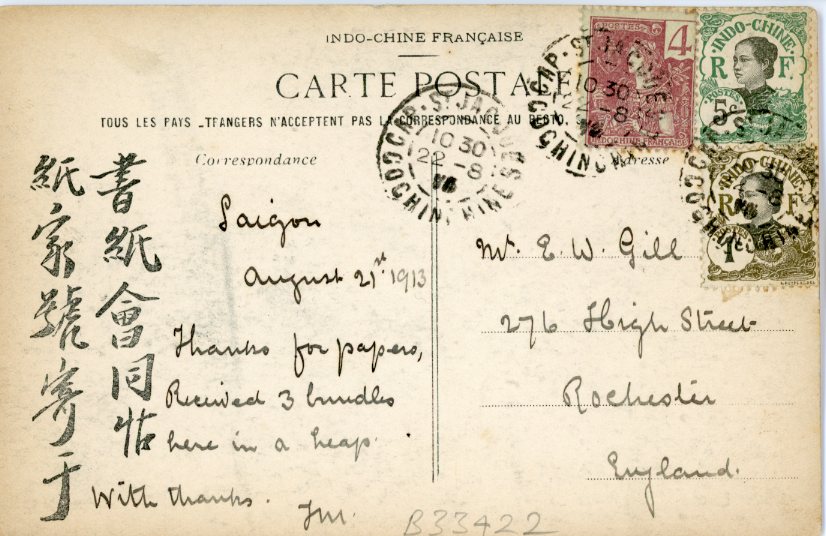 INDO-CHINE FRANÇAISE
CARTE POSTALE
TOUS LES PAYS ETRANGERS N'ACCEPTENT PAS LA CORRESPONDANCE AU RECTO.
Correspondance
Adresse
書紙會同怗
紙家號寄于
Saigon
August 21st 1913
Thanks for papers,
Received 3 bundles
here in a heap.
With thanks.
JM.
Mr. E. W. Gill
276 High Street
Rochester
England.
B33422
CAP-ST JACQUES
10 30
22 - 8
COCHINCHINE
POSTES
4
INDOCHINE FRANÇAISE
INDO-CHINE
R F
5c
POSTES
INDO-CHINE
R F
1c
CAP-ST JACQUES
10 30
22 - 8
COCHINCHINE